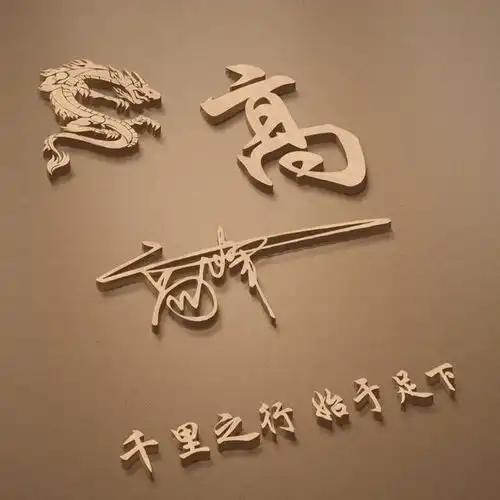 高
千里之行 始于足下